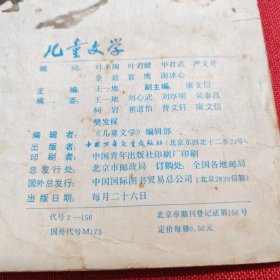 儿童文学
顾 问: 叶圣陶 叶君健 华君武 严文井
金 近 袁 鹰 谢冰心
主 编: 王一地 副主编: 康文信
编 委: 王一地 刘心武 刘厚明 吴泰昌
阿 岩 崔道怡 曹文轩 康文信
樊发稼
编 辑 者: 《儿童文学》编辑部
出 版 者: 中国少年儿童出版社(北京东四北十二条21号)
印 刷 者: 中国青年出版社印刷厂印刷
总 发 行 处: 北京市邮局 订购处: 全国各地邮局
国外总发行: 中国国际图书贸易总公司(北京2820信箱)
出 版 日 期: 每月二十六日
代号2—156 北京市期刊登记证第156号
国外代号M173 定价每册0.50元